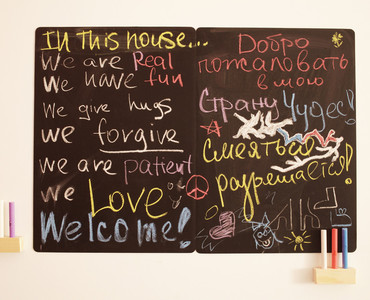 In this house...
We are Real
We have fun
We give hugs
we forgive
we are patient
we Love
Welcome!
Добро
пожаловать
в мою
Страну Чудес!
Смеяться
разрешается!